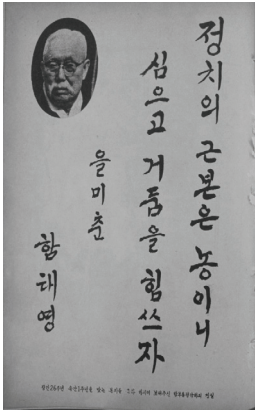 정치의 근본은 농이니
심으고 거둠을 힘쓰자
을미춘
함태영